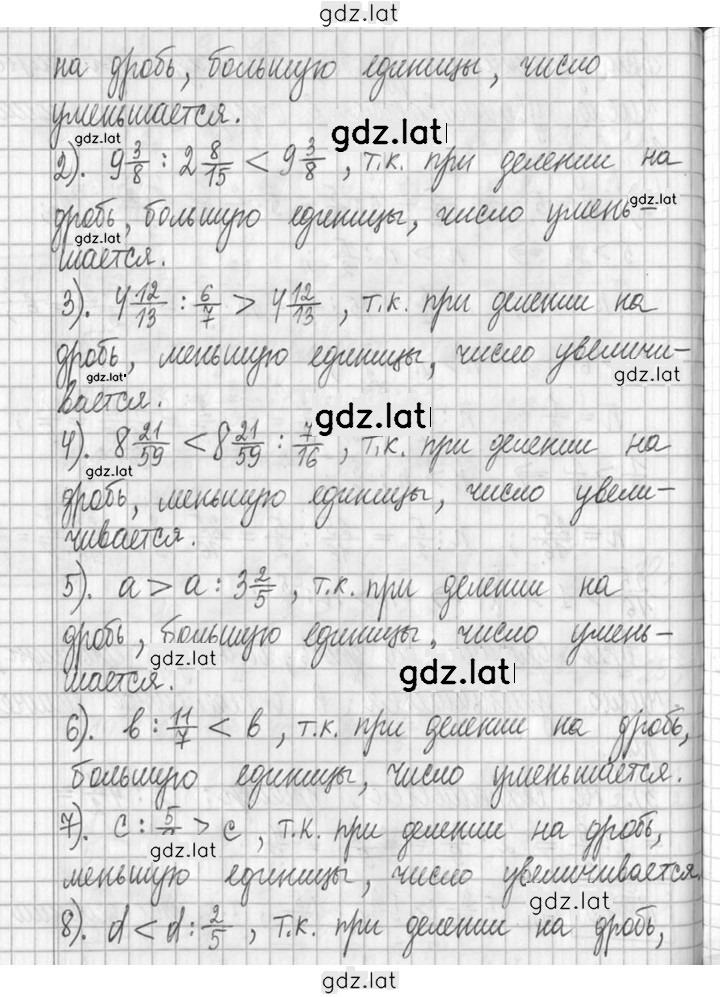 gdz.lat
на дробь, большую единицы, число
уменьшается.
gdz.lat
gdz.lat
2). 9 3/8 : 2 8/15 < 9 3/8, т.к. при делении на
дробь, большую единицы, число умень-
gdz.lat
gdz.lat
шается.
3). 4 12/13 : 6/7 > 4 12/13, т.к. при делении на
дробь, меньшую единицы, число увеличи-
gdz.lat
gdz.lat
вается.
gdz.lat
4). 8 21/59 < 8 21/59 : 7/16, т.к. при делении на
gdz.lat
дробь, меньшую единицы, число увели-
чивается.
5). a > a : 3 2/5, т.к. при делении на
дробь, большую единицы, число умень-
gdz.lat
шается.
gdz.lat
6). b : 11/7 < b, т.к. при делении на дробь,
большую единицы, число уменьшается.
7). c : 5/ > c, т.к. при делении на дробь,
gdz.lat
меньшую единицы, число увеличивается.
gdz.lat
8). d < d : 2/5, т.к. при делении на дробь,
gdz.lat